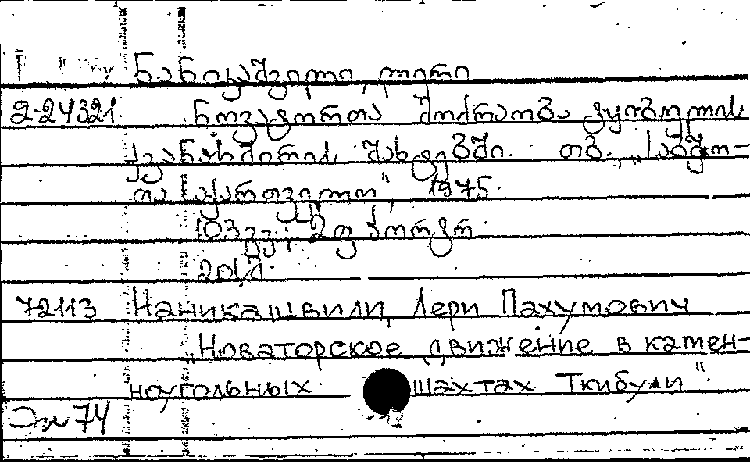 ნანიკაშვილი, ლერი
2-24321 ნოვატორთა მოძრაობა ტყიბულის
ქვანახშირის შახტებში. თბ., „საბჭო-
თა საქართველო“, 1975.
103 გვ.; 2 ფ პორტრ.
20/კ.
72113 Наникашвили, Лери Пахумович
„Новаторское движение в камен-
ноугольных шахтах Ткибули“
74